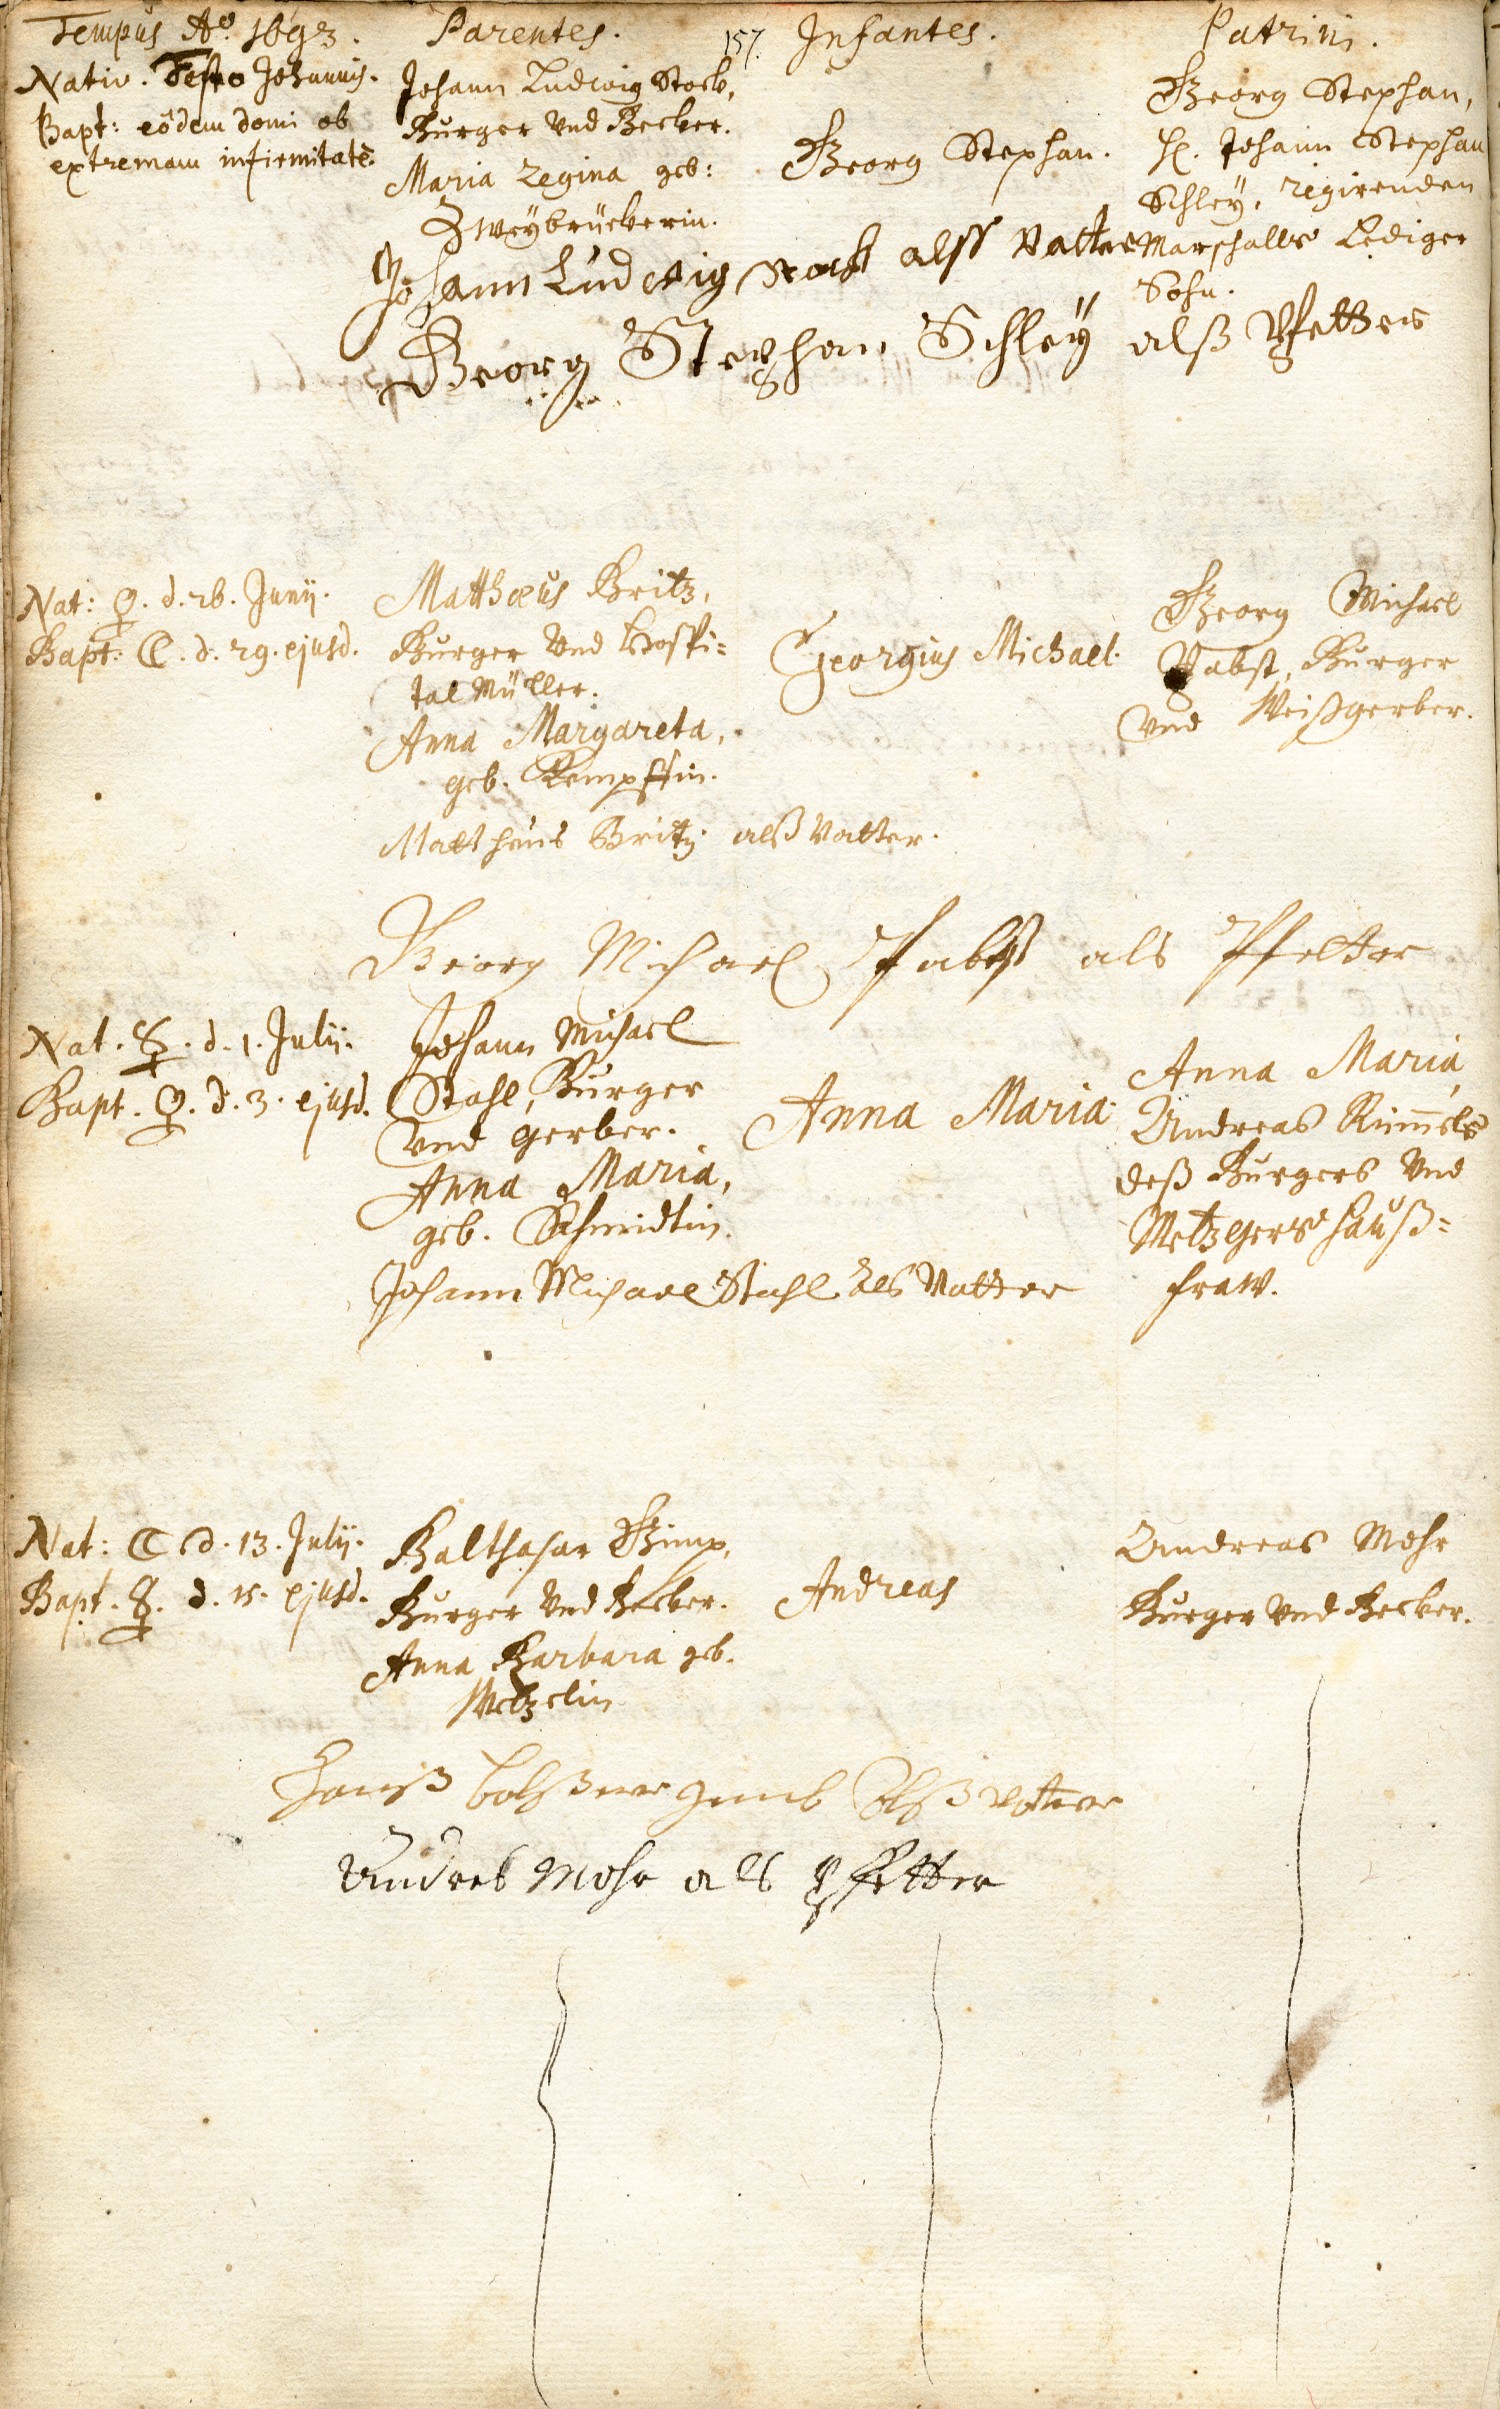 Tempus Aº. 1693. Parentes. 157. Infantes. Patrini.
Nativ. Festo Johannis.
Bapt: eôdem domi ob
extremam infirmitatē.
Johann Ludwig Stock,
Burger Vnd Becker.
Maria Regina geb:
Zweÿbrückerin.
Georg Stephan.
Georg Stephan,
H. Johann Stephan
Schleÿ, regirenden
Marschalls Lediger
Sohn.
Johann Ludwig Stock alss Vatter
Georg Stephan Schleÿ alß Pfetter
Nat: ♀. d. 26. Junij.
Bapt: ☾. d. 29. ejusd.
Matthæus Britz,
Burger Vnd Hospi=
tal Müller.
Anna Margareta,
geb. Kempffin.
Georgius Michael.
Georg Michael
Pabst, Burger
Vnd Weißgerber.
Mattheus Britz alß Vatter.
Georg Michael Pabst als Pfetter
Nat. ☿. d. 1. Julij.
Bapt. ♀. d. 3. ejusd.
Johann Michael
Stahl, Burger
Vnd Gerber.
Anna Maria,
geb. Schmidtin.
Anna Maria
Anna Maria,
Andreas Rümels
deß Burgers Vnd
Metzgers hauß=
fraw.
Johann Michael Stahl als Vatter
Nat: ☾ d. 13. Julij.
Bapt. ☿. d. 15. ejusd.
Balthasar Gimp,
Burger Vnd Becker.
Anna Barbara geb.
Metzelin
Andreas
Andreas Mohr
Burger Vnd Becker.
Hanß
Andres Mohr als Pfetter